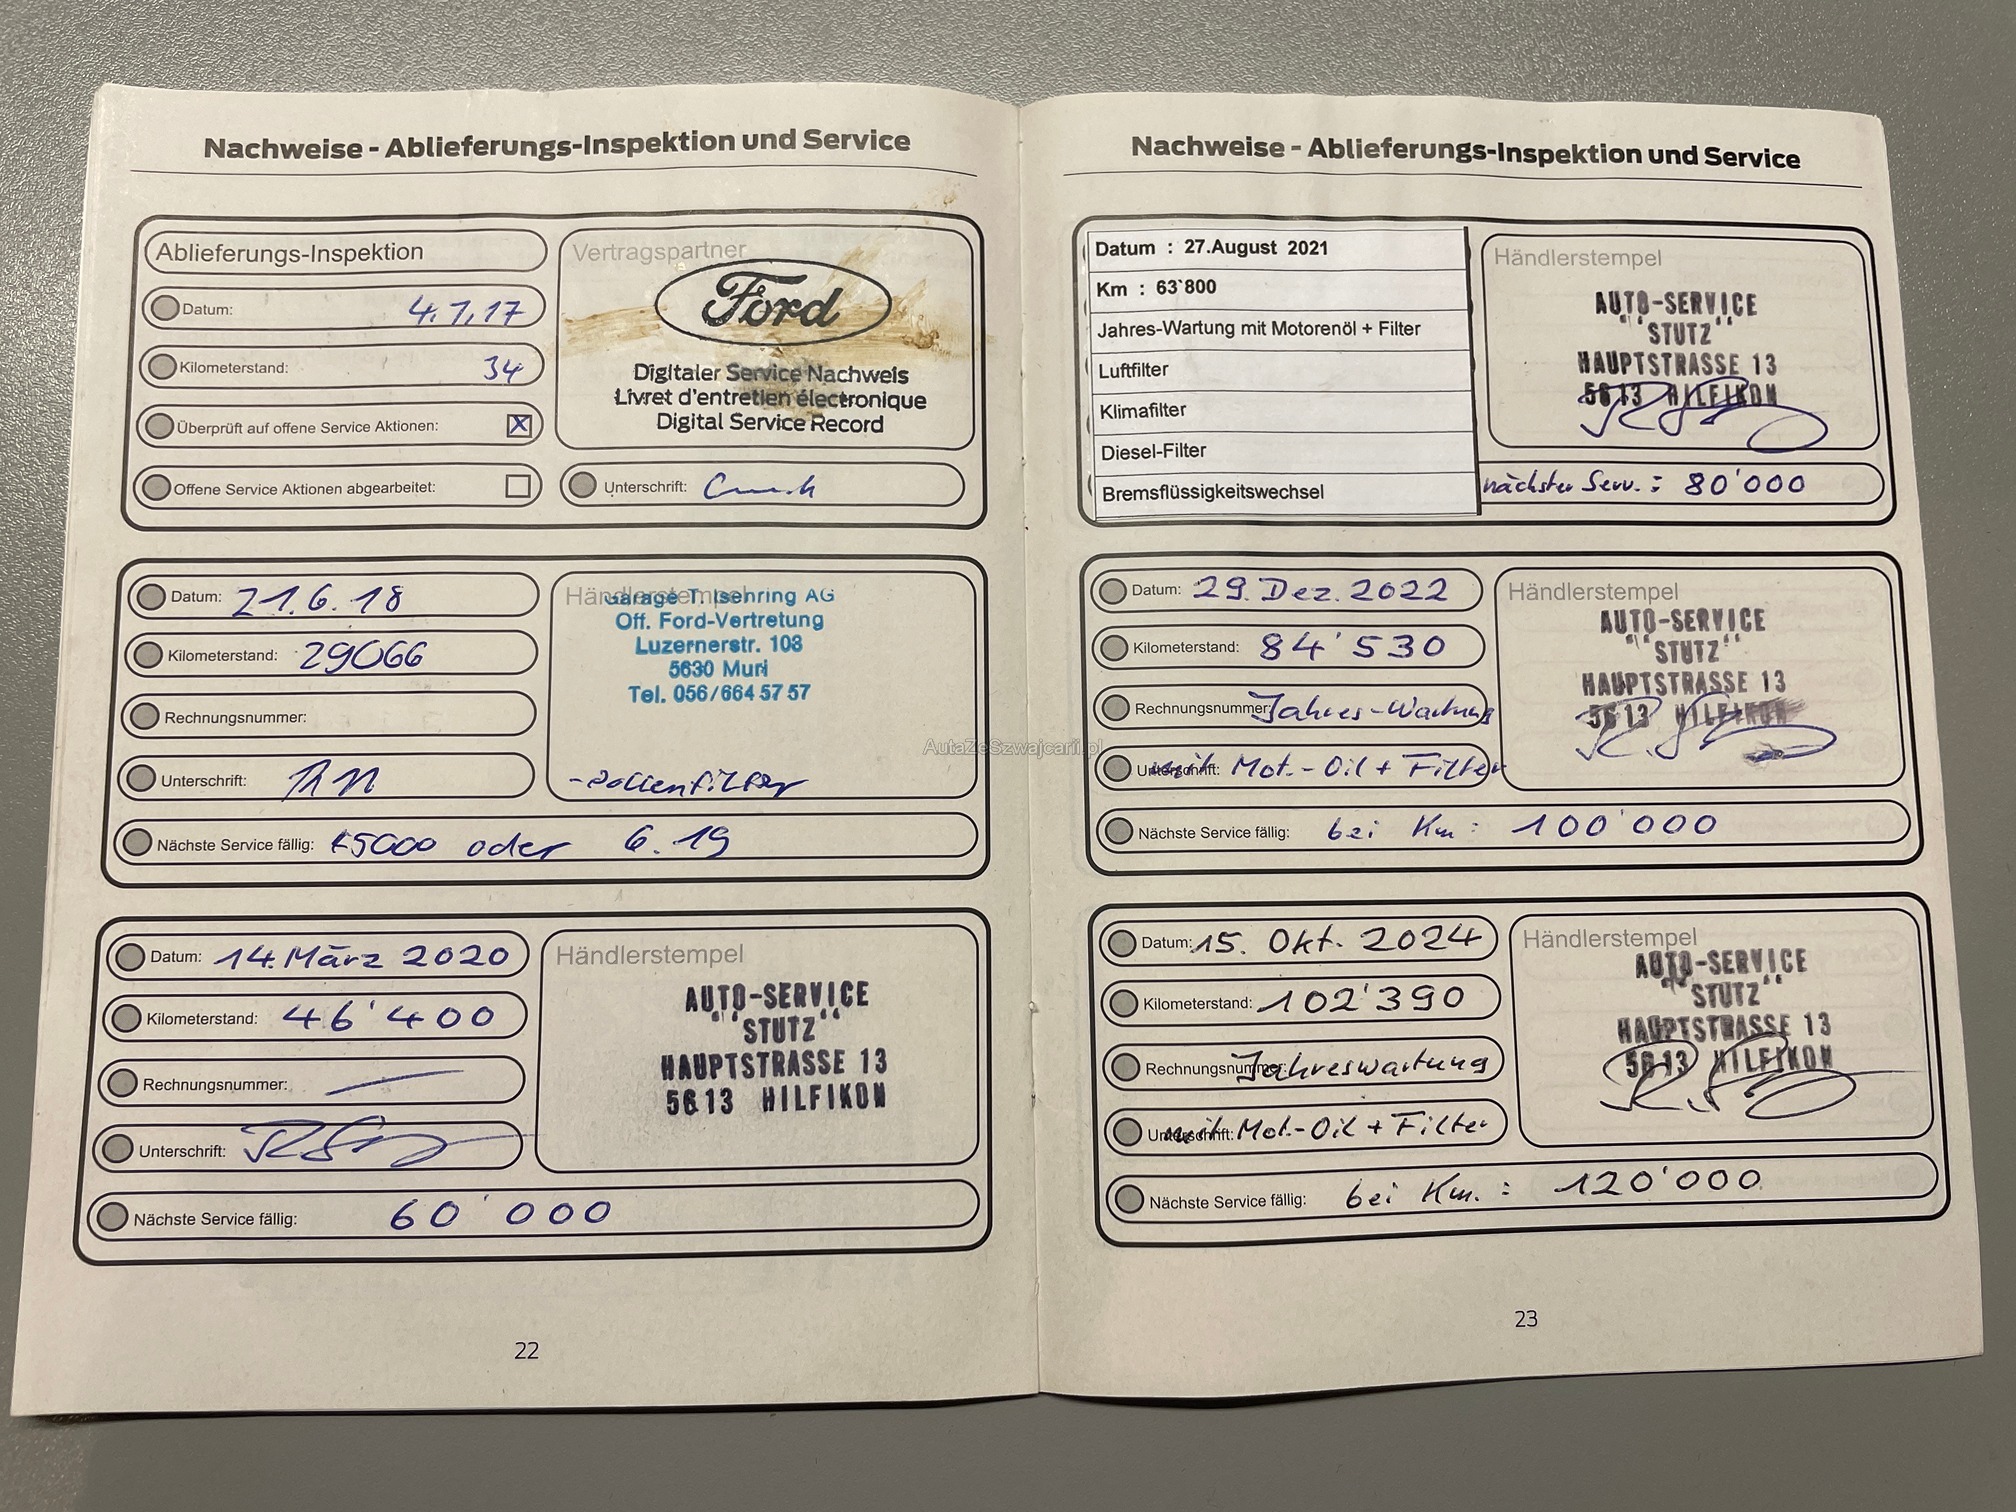 Nachweise - Ablieferungs-Inspektion und Service
Ablieferungs-Inspektion
Datum: 4.7.17
Kilometerstand: 34
Überprüft auf offene Service Aktionen: X
Offene Service Aktionen abgearbeitet:
Vertragspartner
Ford
Digitaler Service Nachweis
Livret d'entretien électronique
Digital Service Record
Unterschrift:
Datum: 21.6.18
Kilometerstand: 29066
Rechnungsnummer:
Unterschrift:
Händlerstempel
Garage T. Gehring AG
Off. Ford-Vertretung
Luzernerstr. 103
5630 Muri
Tel. 056/664 57 57
-Pollenfilter
Nächste Service fällig: 45000 oder 6.19
Datum: 14. März 2020
Kilometerstand: 46'400
Rechnungsnummer:
Unterschrift:
Händlerstempel
AUTO-SERVICE
"STUTZ"
HAUPTSTRASSE 13
5613 HILFIKON
Nächste Service fällig: 60'000
22
Nachweise - Ablieferungs-Inspektion und Service
Datum : 27.August 2021
Km : 63`800
Jahres-Wartung mit Motorenöl + Filter
Luftfilter
Klimafilter
Diesel-Filter
Bremsflüssigkeitswechsel
Händlerstempel
AUTO-SERVICE
"STUTZ"
HAUPTSTRASSE 13
5613 HILFIKON
nächster Serv.: 80'000
Datum: 29. Dez. 2022
Kilometerstand: 84'530
Rechnungsnummer: Jahres-Wartung
Unterschrift: mit Mot.-Oil + Filter
Händlerstempel
AUTO-SERVICE
"STUTZ"
HAUPTSTRASSE 13
5613 HILFIKON
Nächste Service fällig: bei Km: 100'000
Datum: 15. Okt. 2024
Kilometerstand: 102'390
Rechnungsnummer: Jahreswartung
Unterschrift: mit Mot.-Oil + Filter
Händlerstempel
AUTO-SERVICE
"STUTZ"
HAUPTSTRASSE 13
5613 HILFIKON
Nächste Service fällig: bei Km.: 120'000
23
AutaZeSzwajcarii.pl